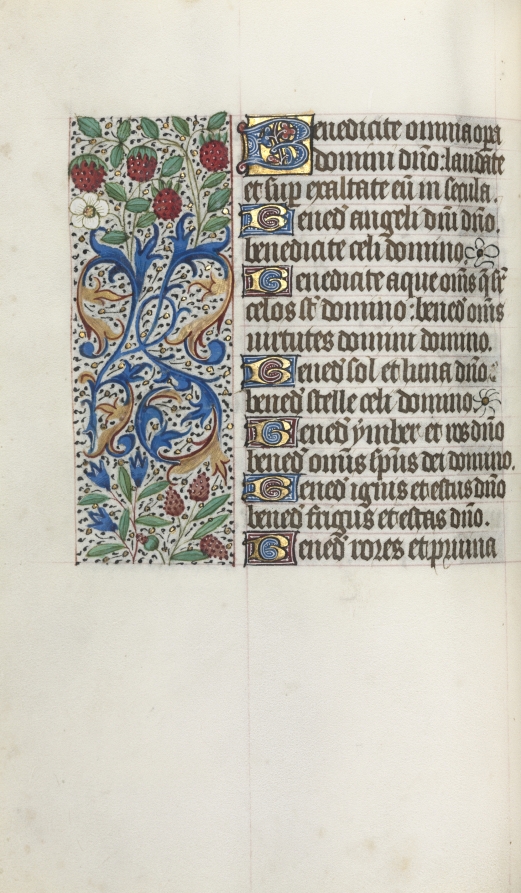 Benedicite omnia opa
domini dño: laudate
et sup exaltate eū in secula.
Bened angeli dñi dño.
benedicite celi domino
Benedicite aque oms q sr
celos st domino: bened oms
uirtutes domini domino.
Bened sol et luna dño:
bened stelle celi domino
Bened ymber et ros dño
bened omis spūs dei domino.
Bened ignis et estus dño
bened frigus et estas dño.
Bened rores et pruina